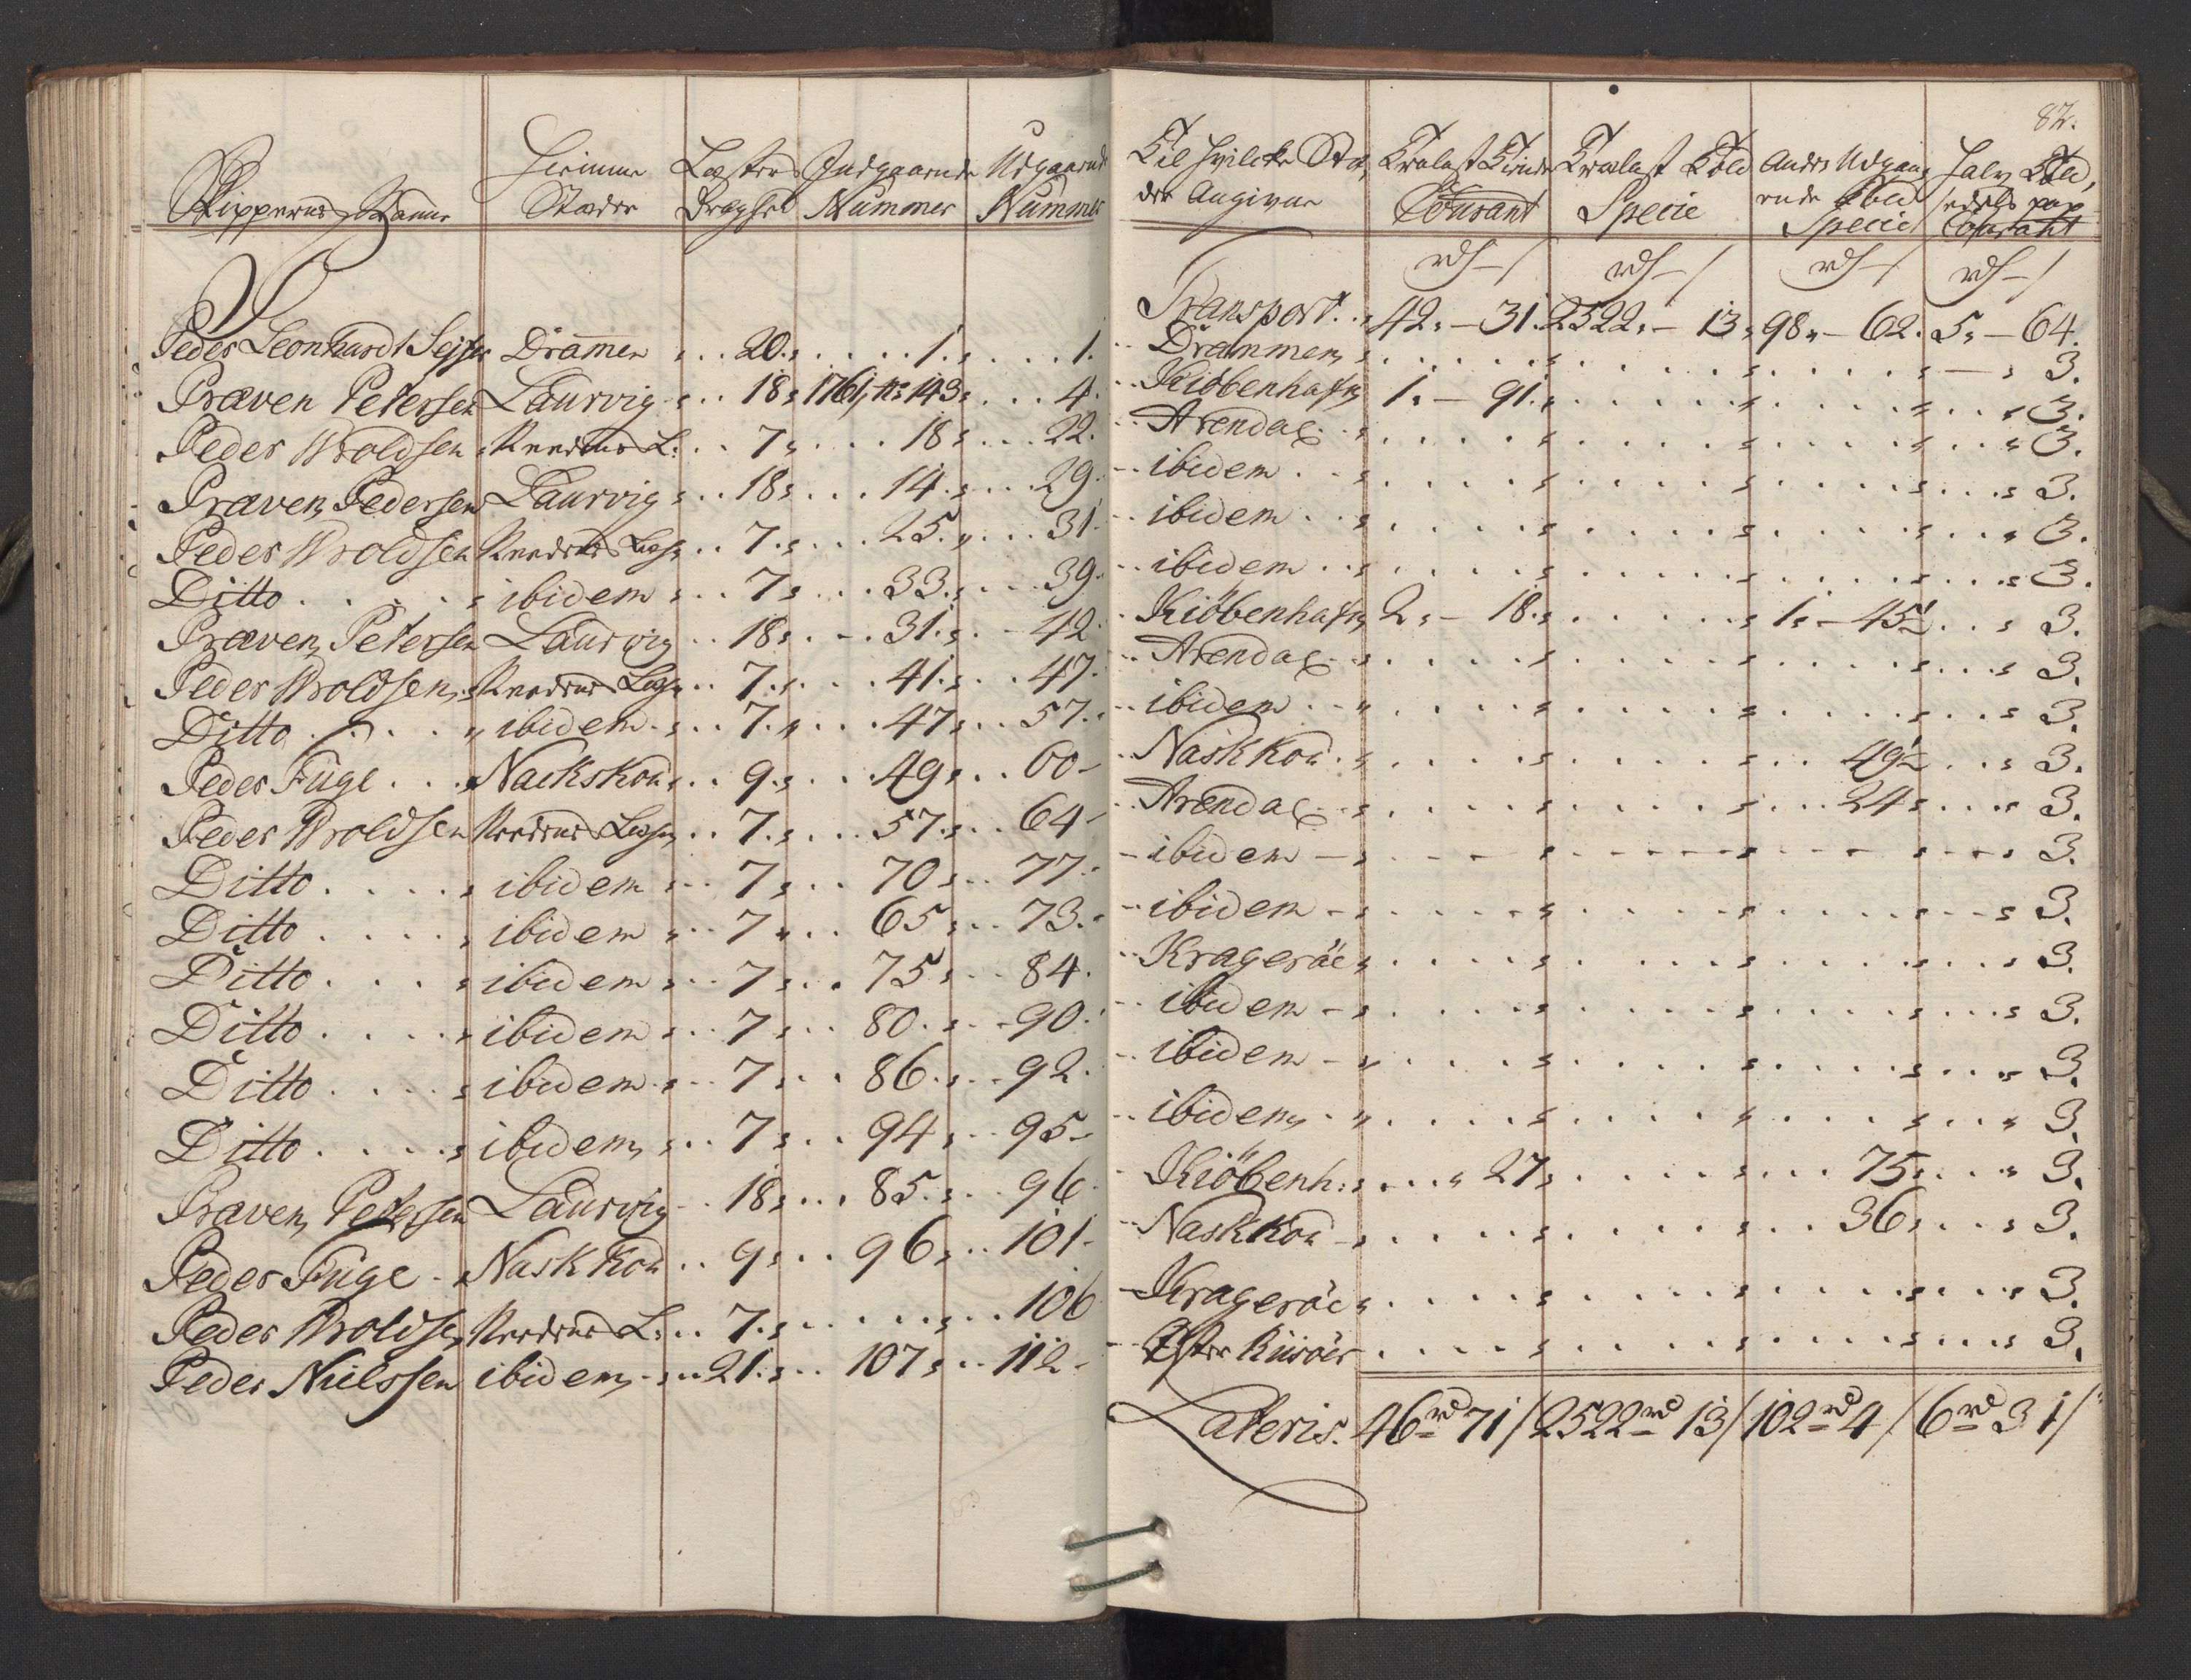 82.
Skippernes Nafne | Hiemme Stæder | Læsters Drægthed | Indgaaende Nummer | Udgaaende Nummer | Til hvilcke Stæder Angivne | Trælast Tiende Courant | Trælast Told Specie | Andre Udgaaende Told Specie | Courant
P
Transport . . 42 „ — 31. 2522 „ — 13 „ 98 „ — 62. 5 „ — 64.
Peder Leonhardt Drammen . . 20 . . . . 1 . . . . 1. Drammen . . . . 3.
Præven Petersen Laurvig . . 18 „ 1761, No 143 . . . 4. Kiöbenhafn 1 „ — 91 . . . . 3.
Peder Wroldsen L: . . 7 „ . . . 18 „ . . . 22. Arendal . . . . 3.
Præven Pedersen Laurvig . . 18 „ . . . 14 . . . 29. ibidem . . . . 3.
Peder Wroldsen . . 7 . . . . 25 „ . . . 31. ibidem . . . . 3.
Ditto . . . . ibidem . . 7 „ . . . 33 . . . . 39. ibidem . . . . 3.
Præven Petersen Laurvig . . 18 „ . . . 31 . . . 42 Kiöbenhafn 2 „ — 18 . . . . 1 „ — 45½ . . 3.
Peder Wroldsen . . 7 . . . . 41 . . . 47. Arendal . . . . 3.
Ditto . . . . ibidem . . 7 „ . . . 47 „ . . 57. ibidem . . . . 3.
Peder Fuge . . . Nackskou . . 9 . . . 49 „ . . 60 - Naskkou . . . . 49½ . . 3.
Peder Wroldsen . . 7 . . . . 57 . . . 64 - Arendal . . . . 24 „ . . . 3.
Ditto . . . . ibidem . . 7 „ . . . 70 „ . . 77. ibidem . . . . 3.
Ditto . . . . ibidem . . 7 „ . . . 65 „ . . 73. ibidem . . . . 3.
Ditto . . . . ibidem . . 7 „ . . . 75 „ . . 84. Krageröe . . . . 3.
Ditto . . . . ibidem . . 7 „ . . . 80 . . . 90. ibidem . . . . 3.
Ditto . . . . ibidem . . 7 „ . . . 86 . . . 92. ibidem . . . . 3.
Ditto . . . . ibidem . . 7 „ . . . 94 „ . . 95 - ibidem . . . . 3.
Præven Petersen Laurvig . . 18 „ . . . 85 . . . 96. Kiöbenh: . . . „ 27 „ . . . . 75 „ . . . 3.
Peder Fuge - Naskkou . . 9 „ . . 96 „ . . 101 - Naskkou . . . . 36 „ . . . 3.
Peder Wroldsen L: . . 7 . . . . . . . 106 Krageröe . . . . 3.
Peder Nielssen ibidem . . 21 . . . 107 „ . . 112 - Öster Riisöer . . . . 3.
Lateris. 46 rd 71 / 2522 rd 13 / 102 rd 4 / 6 rd 31 /